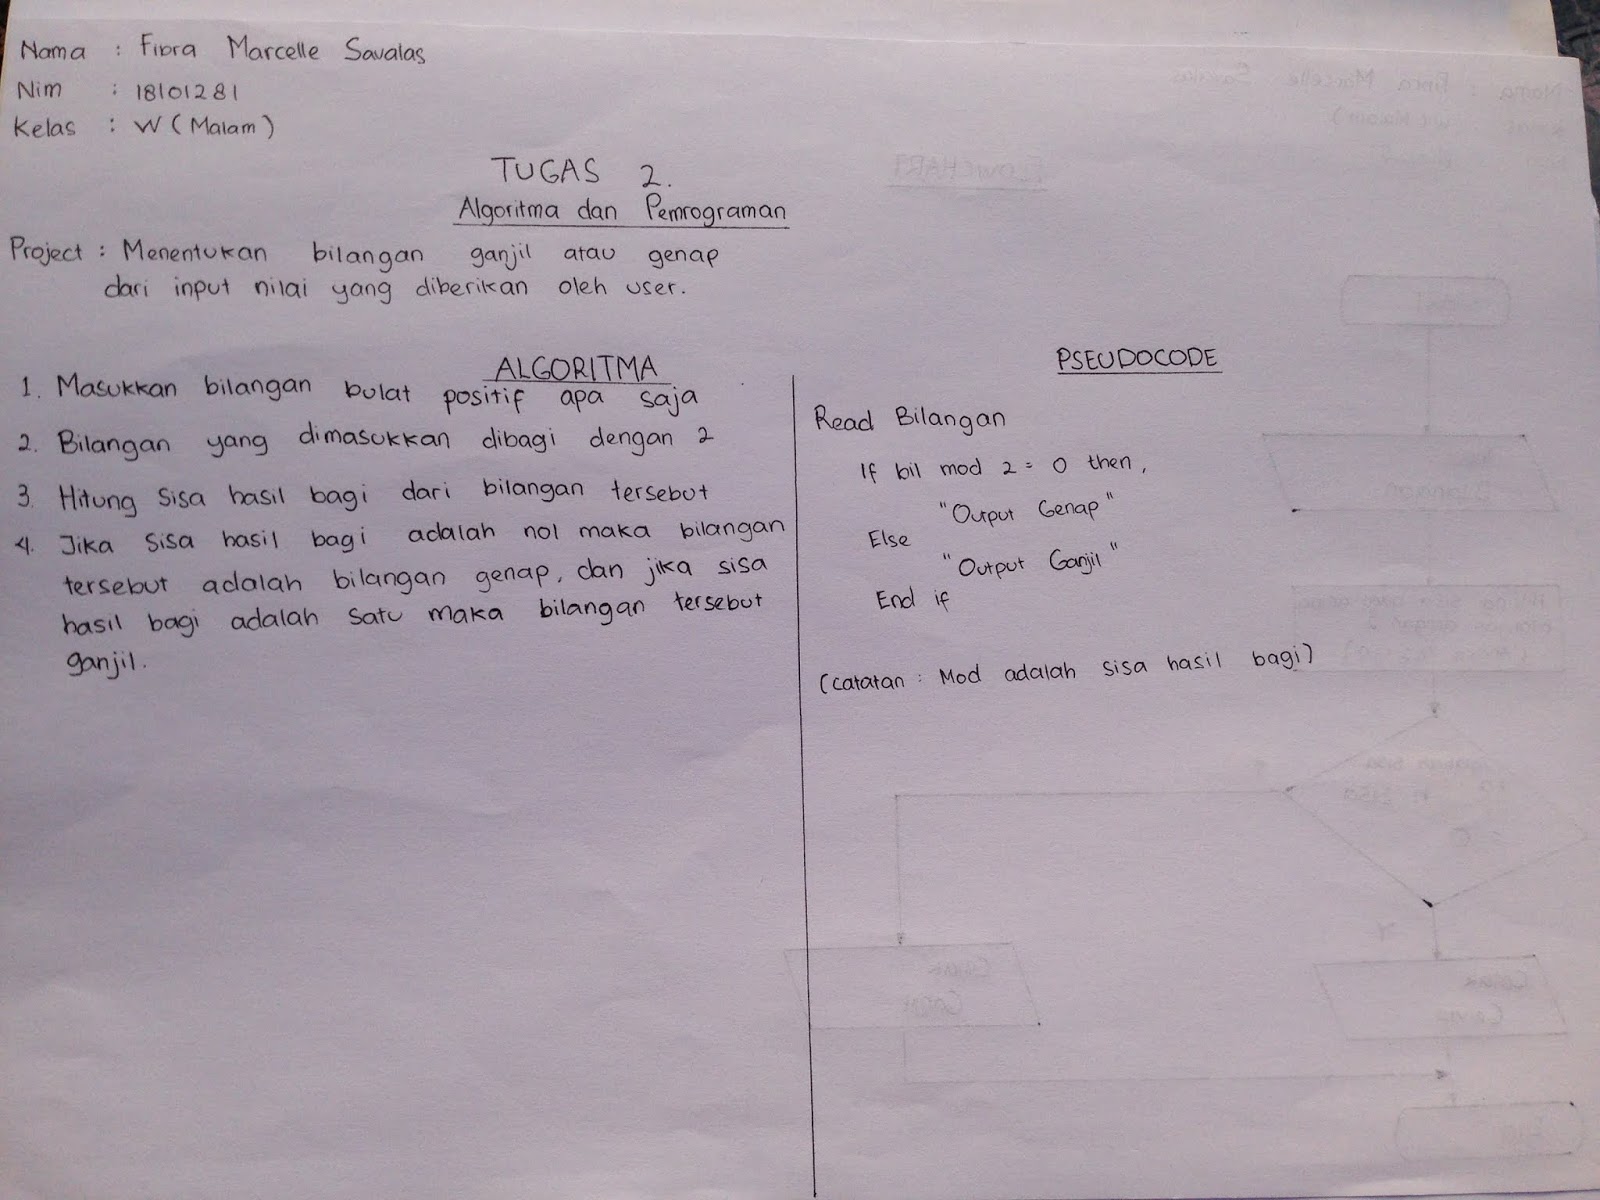 Nama : Fibra Marcelle Savalas
Nim : 18101281
Kelas : W (Malam)
TUGAS 2.
Algoritma dan Pemrograman
Project : Menentukan bilangan ganjil atau genap
dari input nilai yang diberikan oleh user.
ALGORITMA
1. Masukkan bilangan bulat positif apa saja
2. Bilangan yang dimasukkan dibagi dengan 2
3. Hitung sisa hasil bagi dari bilangan tersebut
4. Jika sisa hasil bagi adalah nol maka bilangan
tersebut adalah bilangan genap, dan jika sisa
hasil bagi adalah satu maka bilangan tersebut
ganjil.
PSEUDOCODE
Read Bilangan
If bil mod 2 = 0 then,
"Ouput Genap"
Else
"Output Ganjil"
End if
(catatan : Mod adalah sisa hasil bagi)
FLOWCHART